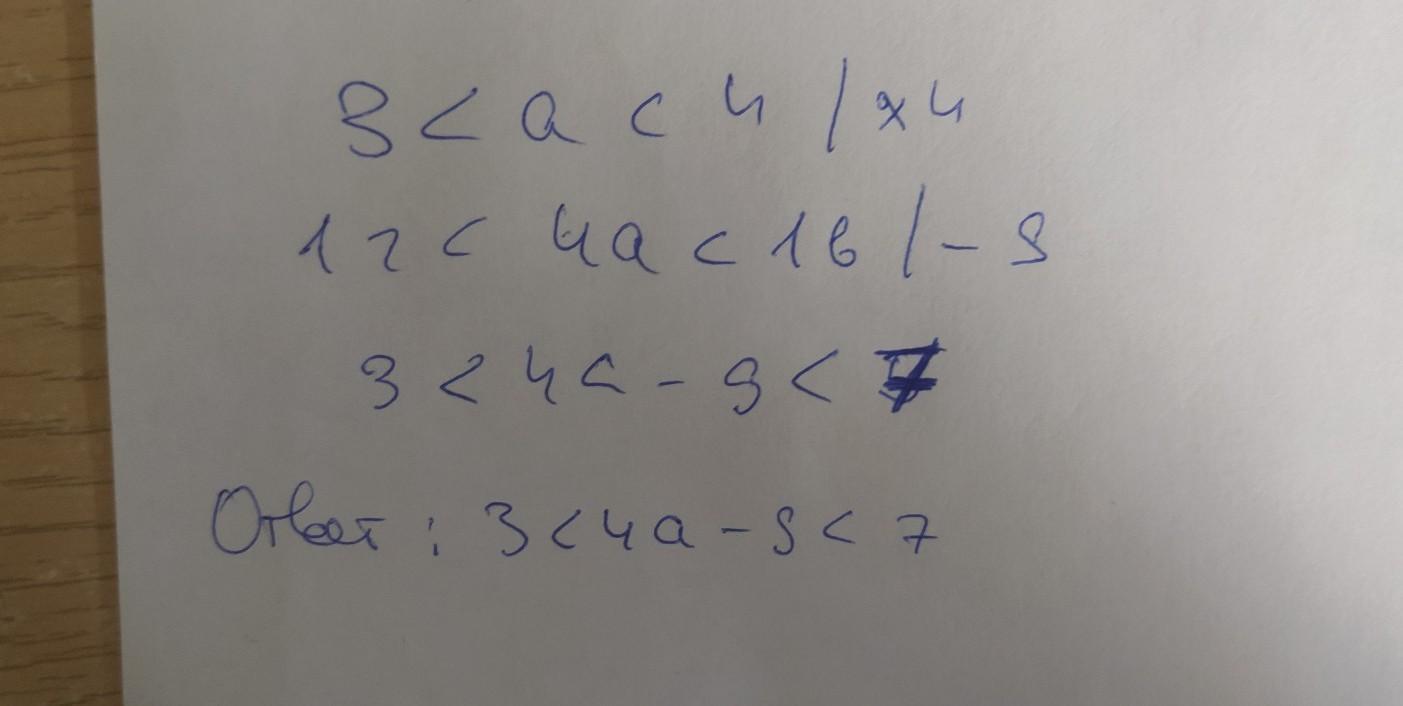 3 < a < 4 / ×4
12 < 4a < 16 / - 9
3 < 4a - 9 < 7
Ответ : 3 < 4a - 9 < 7